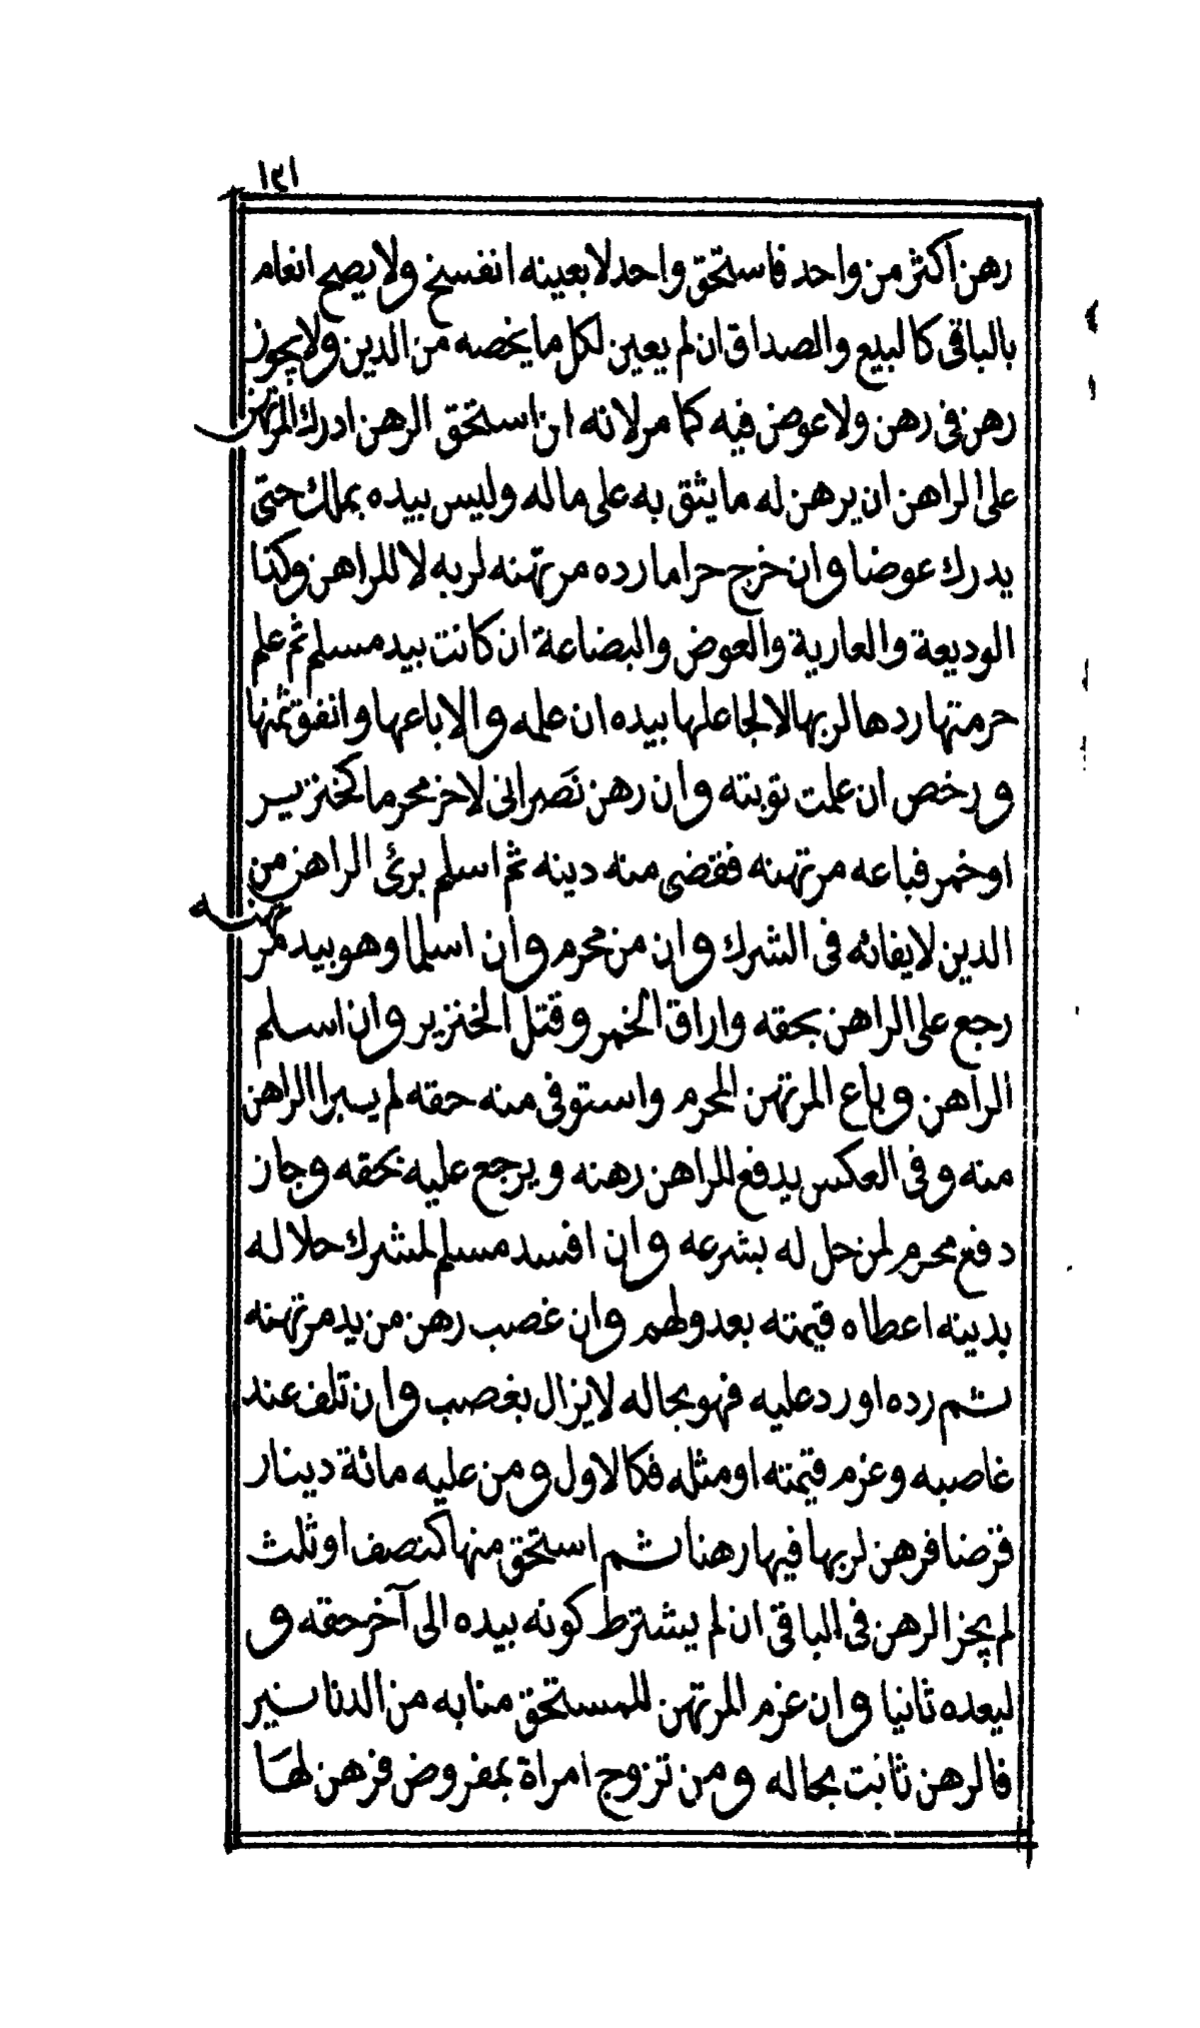 ١٢١
رهن اكثر من واحد فاستحق واحد لا بعينه انفسخ ولا يصح انعام
بالباقى كالبيع والصداق ان لم يعين لكل ما يخصه من الدين ولا يجوز
رهن فى رهن ولا عوض فيه كما مر لانه ان استحق الرهن ادرك المرتهن
على الراهن ان يرهن له ما يثق به على ماله وليس بيده بملك حتى
يدرك عوضا وان خرج حراما رده مرتهنه لربه لا للراهن وكذا
الوديعة والعارية والعوض والبضاعة ان كانت بيد مسلم ثم علم
حرمتها ردها لربها لا لجاعلها بيده ان علمه والا باعها وانفق ثمنها
ورخص ان علمت توبته وان رهن نصرانى لاخر محرما كخنزير
او خمر فباعه مرتهنه فقضى منه دينه ثم اسلم برئ الراهن من
الدين لايفائه فى الشرك وان من محرم وان اسلما وهو بيد مرتهنه
رجع على الراهن بحقه واراق الخمر وقتل الخنزير وان اسلم
الراهن وباع المرتهن المحرم واستوفى منه حقه لم يبرا الراهن
منه وفى العكس يدفع للراهن رهنه ويرجع عليه بحقه وجاز
دفع محرم لمن حل له بشرعه وان افسد مسلم لمشرك حلا له
بدينه اعطاه قيمته بعدولهم وان غصب رهن من يد مرتهنه
ثم رده او رد عليه فهو بحاله لا يزال بغصب وان تلف عند
غاصبه وغرم قيمته او مثله فكالاول ومن عليه مائة دينار
قرضا فرهن لربها فيها رهنا ثم استحق منها كنصف او ثلث
لم يجز الرهن فى الباقى ان لم يشترط كونه بيده الى آخر حقه و
ليعده ثانيا وان غرم المرتهن للمستحق منابه من الدنانير
فالرهن ثابت بحاله ومن تزوج امراة بمفروض فرهن لها